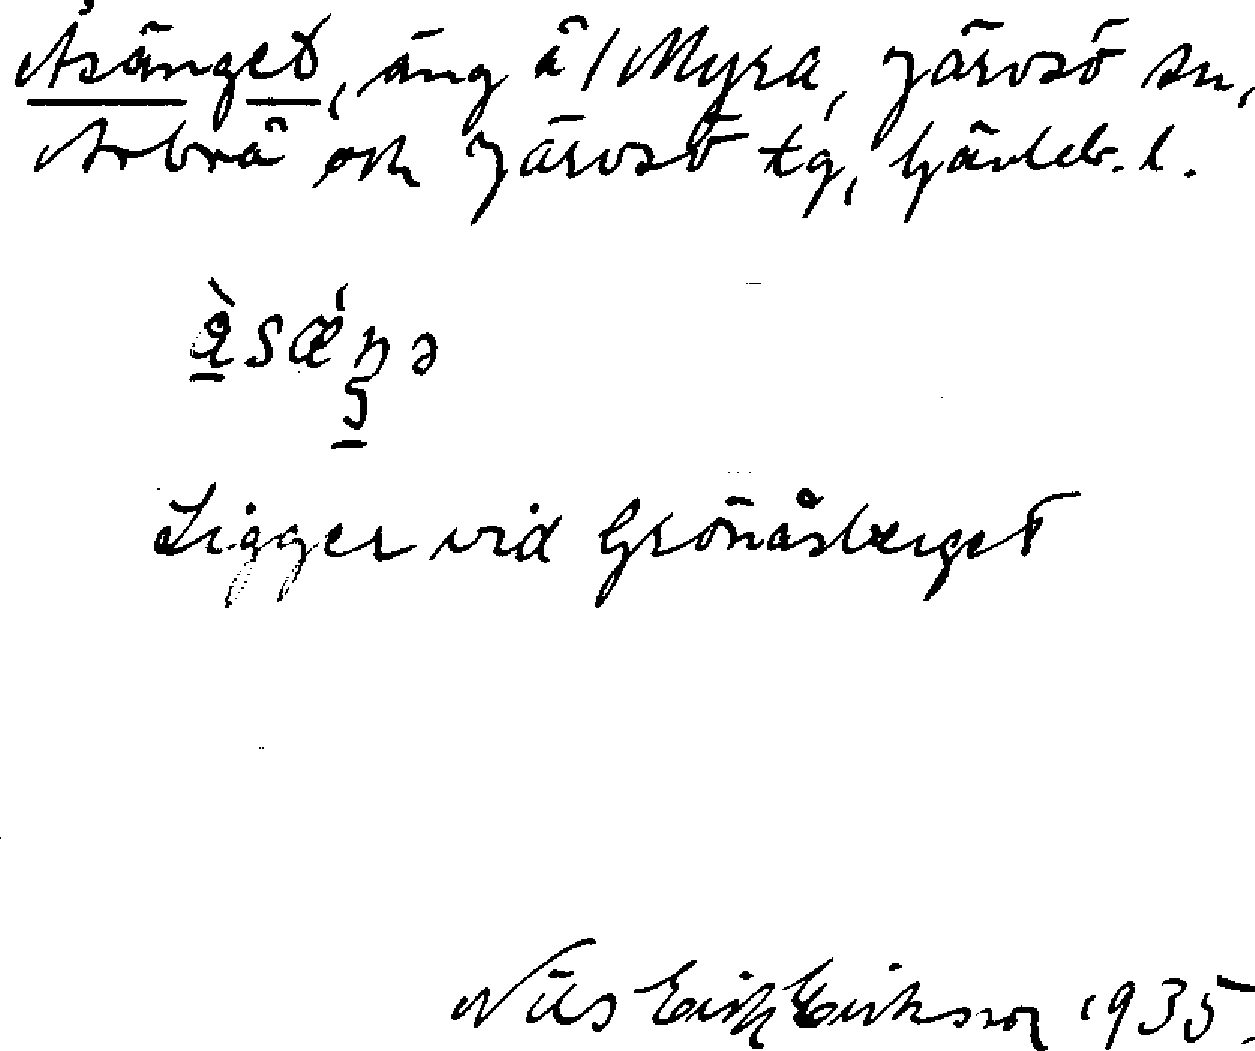 Åsänget, äng å /Myra, Järvsö sn,
Arbrå och Järvsö tg, Gävleb. l.
Ligger vid Grönåsberget
Nils Erik Eriksson 1935.